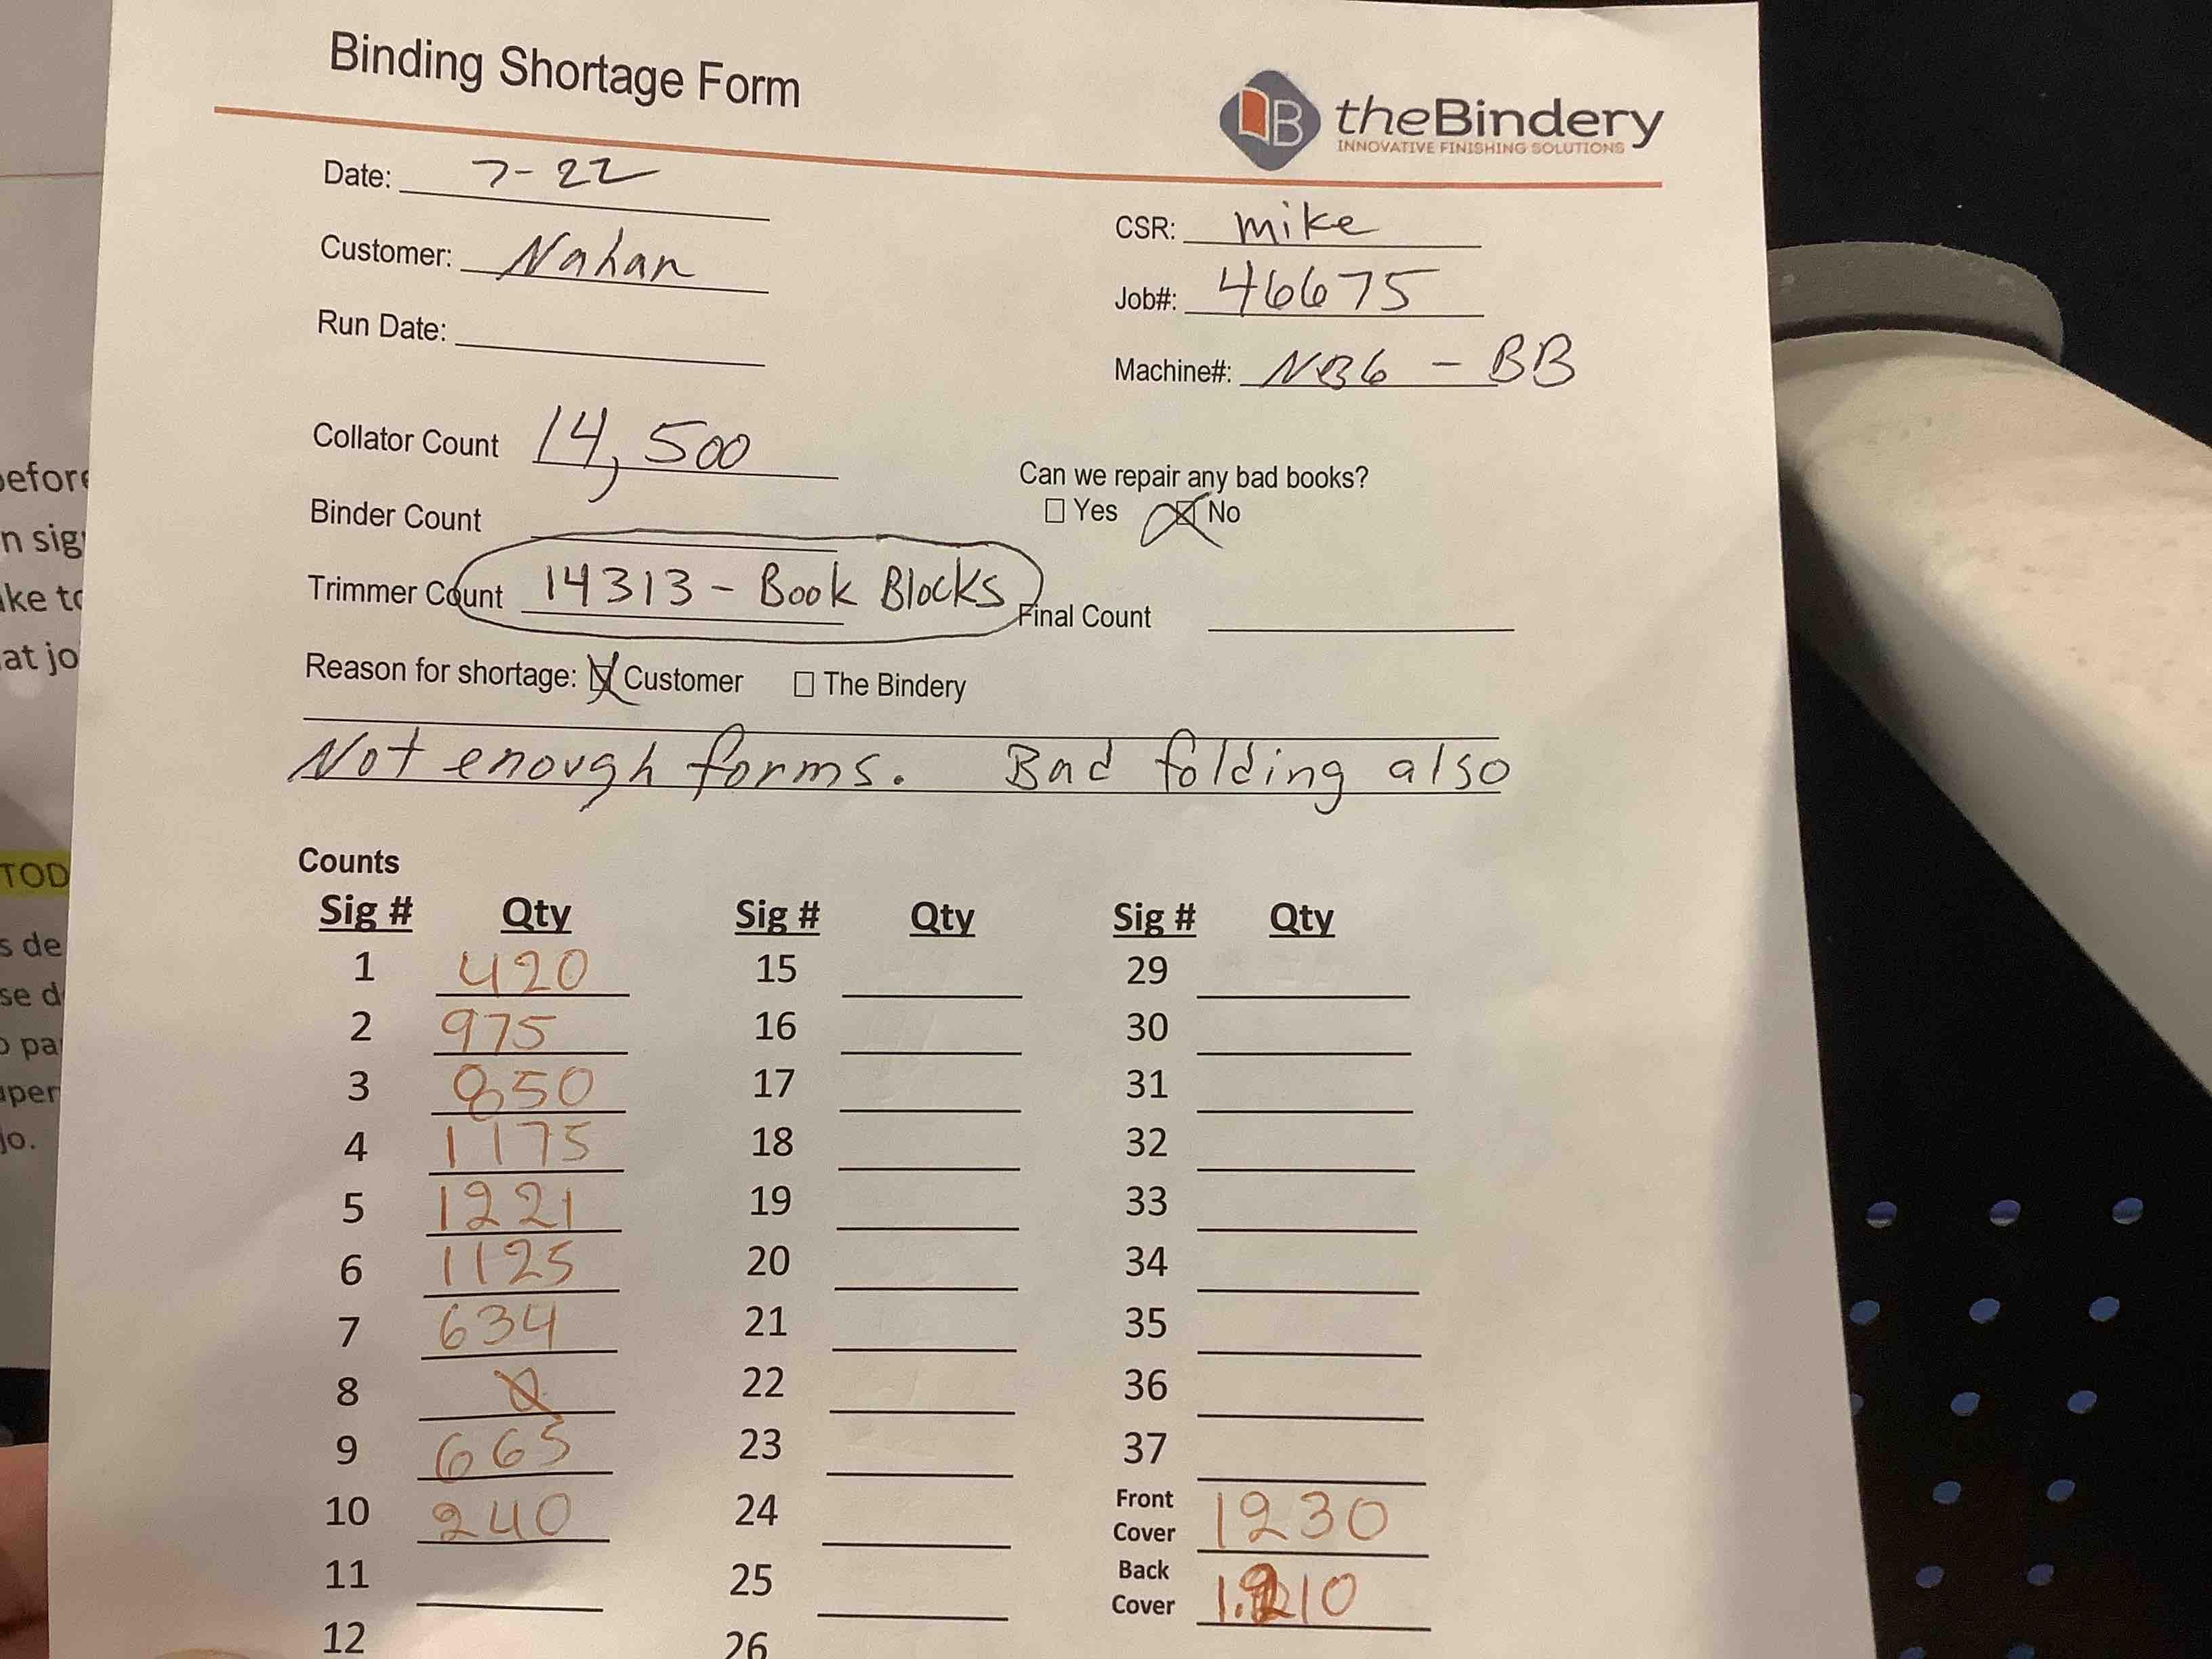 Binding Shortage Form
theBindery
INNOVATIVE FINISHING SOLUTIONS
Date: 7-22
CSR: mike
Customer: Nahan
Job#: 46675
Run Date:
Machine#: NB6 - BB
Collator Count 14,500
Can we repair any bad books?
Yes No
Binder Count
Trimmer Count 14313 - Book Blocks
Final Count
Reason for shortage: Customer The Bindery
Not enough forms. Bad folding also
Counts
Sig # Qty Sig # Qty Sig # Qty
1 420 15 29
2 975 16 30
3 850 17 31
4 1175 18 32
5 1221 19 33
6 1125 20 34
7 634 21 35
8 22 36
9 665 23 37
10 240 24 Front Cover 1230
11 25 Back Cover
12 26
efore
n sig
ke to
at jo
TOD
s de
se d
pa
per
jo.